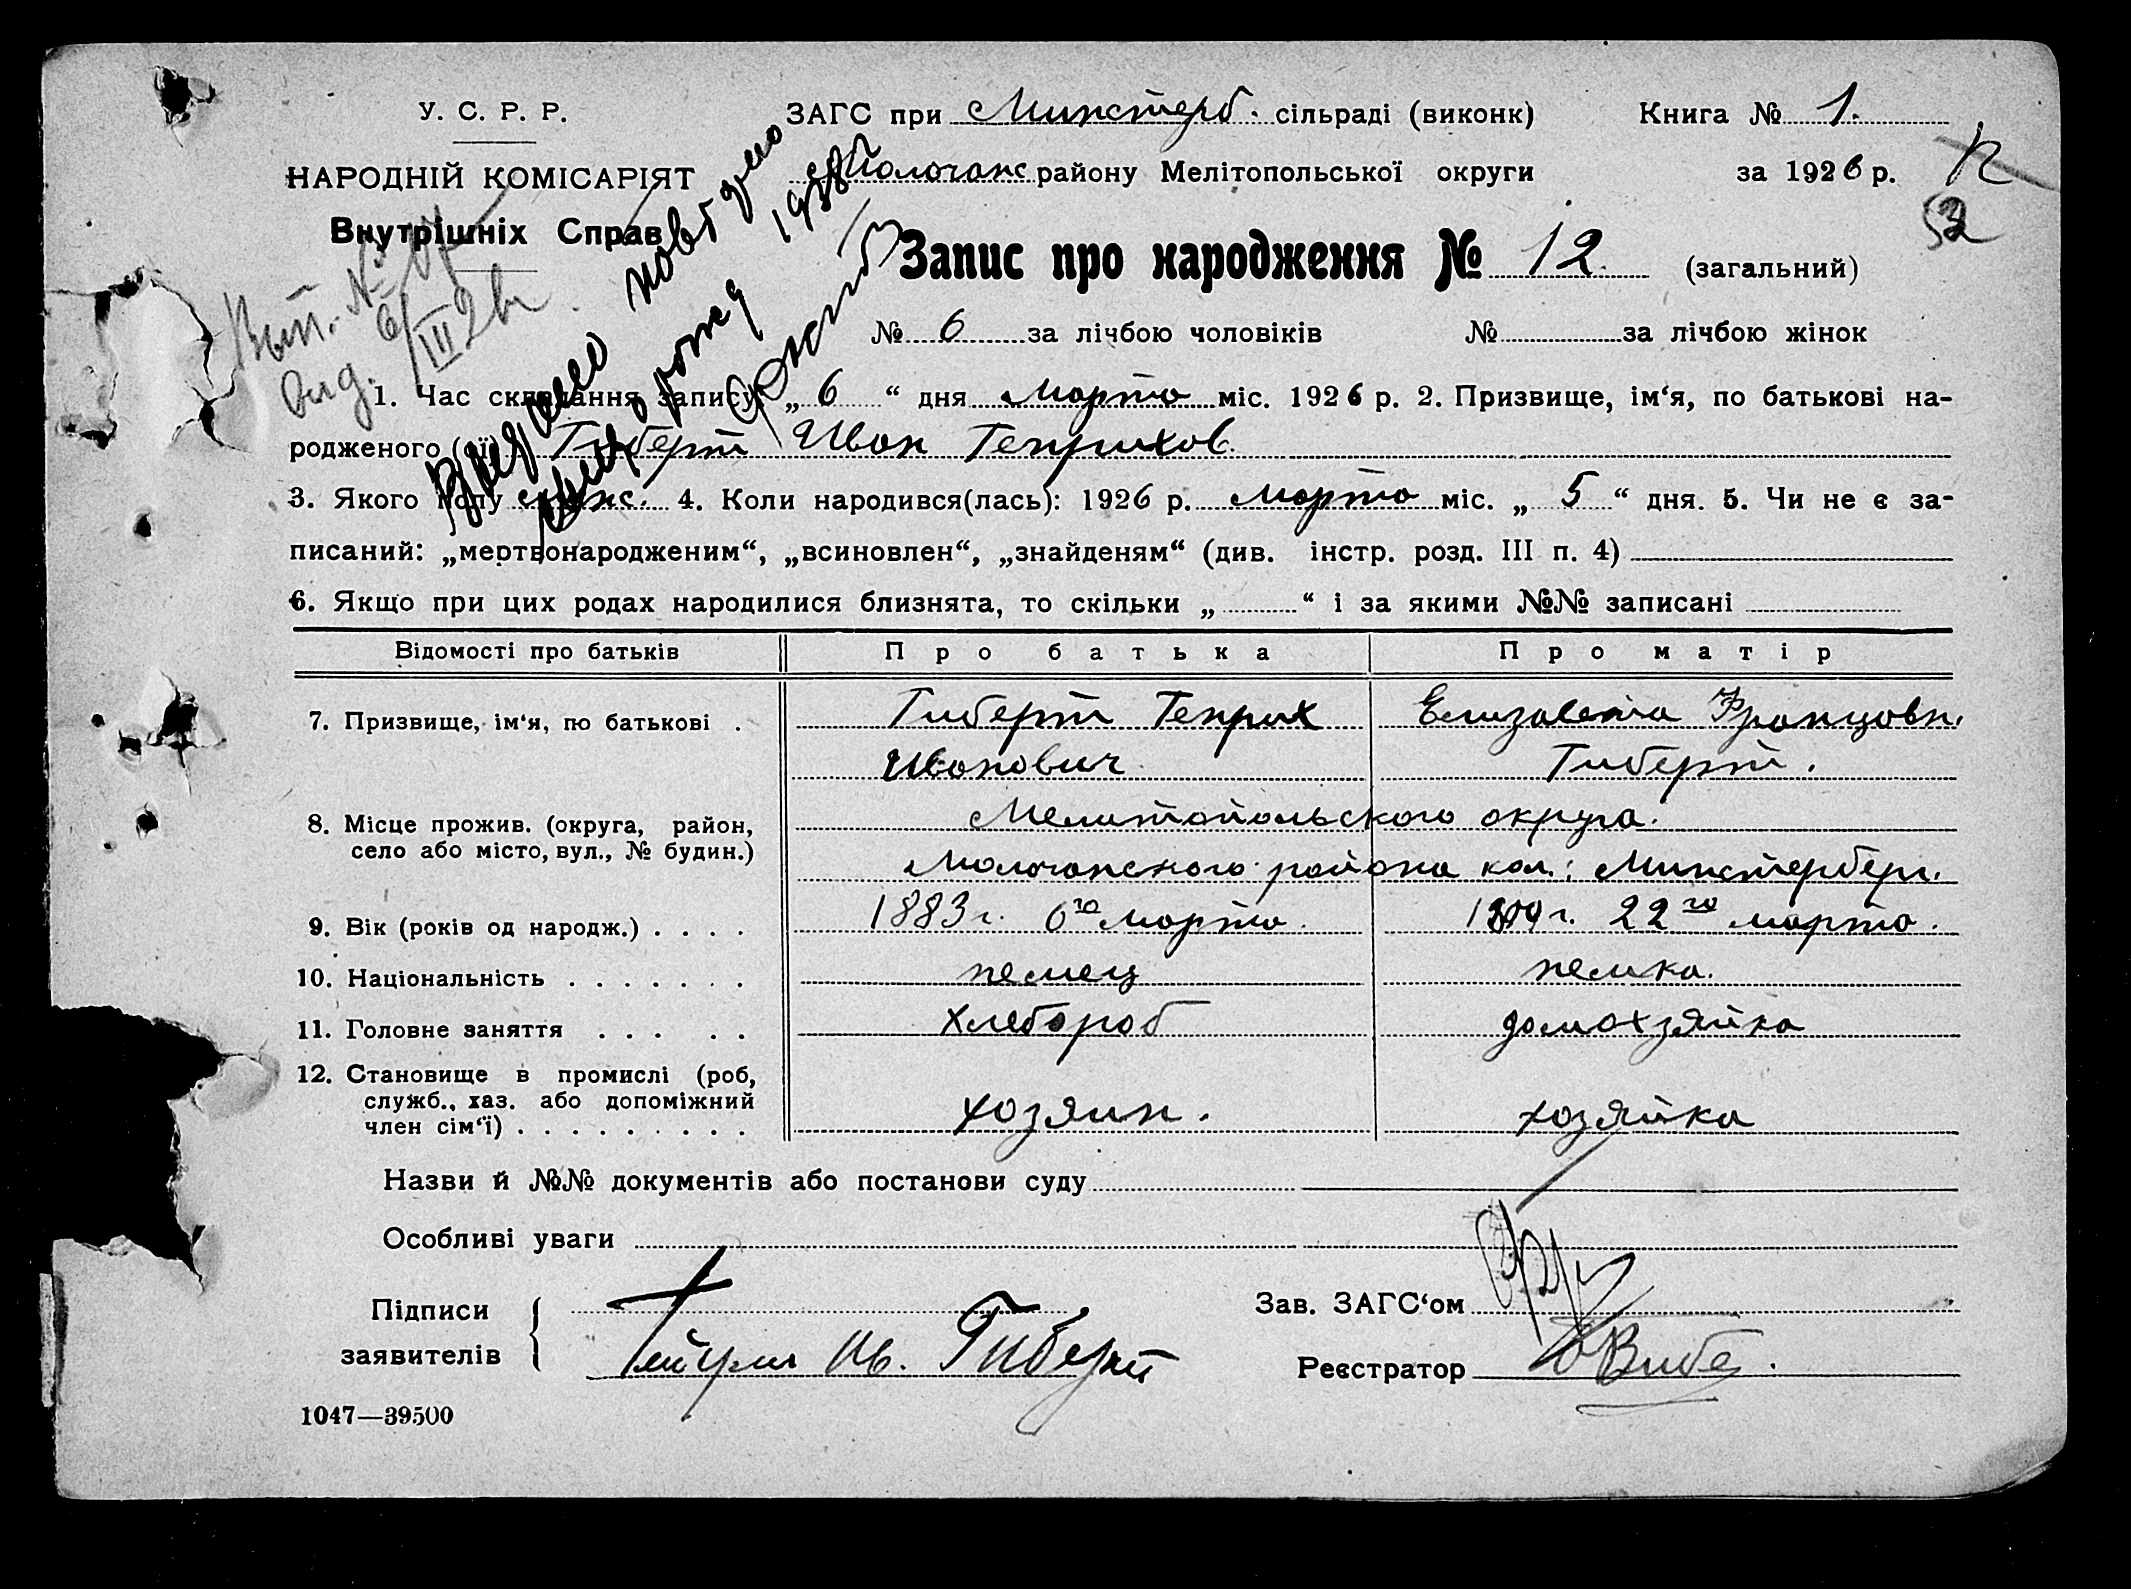 У. С. Р. Р.
НАРОДНІЙ КОМІСАРІЯТ
Внутрішніх Справ
ЗАГС при Минстерб. сільраді (виконк)
Молочанс району Мелітопольської округи
Книга № 1.
за 1926 р.
52
Запис про народження № 12. (загальний)
№ 6 за лічбою чоловіків № за лічбою жінок
Вып. №
Выдано повторно
1938
1. Час складання запису „ 6 “ дня Марта міс. 1926 р. 2. Призвище, ім‘я, по батькові на-
родженого (ої) Тиберт Иван Генрихов.
3. Якого полу 4. Коли народився(лась): 1926 р. марта міс. „ 5 “ дня. 5. Чи не є за-
писаний: „мертвонародженим“, „всиновлен“, „знайденям“ (див. інстр. розд. III п. 4)
6. Якщо при цих родах народилися близнята, то скільки „ “ і за якими №№ записані
Відомості про батьків Про батька Про матір
7. Призвище, ім‘я, по батькові . Тиберт Генрих Елизавета Францовн.
Иванович Тиберт.
8. Місце прожив. (округа, район, Мелитопольского округа.
село або місто, вул., № будин.) Молочанского района кол: Минстерберг.
9. Вік (років од народж.) . . . . 1883 г. 6го марта. г. 22го марта.
10. Національність . . . . . . . немец немка.
11. Головне заняття . . . . . хлебороб домохзяйка
12. Становище в промислі (роб,
служб., хаз. або допоміжний хозяин. хозяйка
член сім‘ї) . . . . . . . . .
Назви й №№ документів або постанови суду
Особливі уваги
Підписи
заявителів Ив. Тиберт
Зав. ЗАГС‘ом
Реєстратор Вибе.
1047—39500